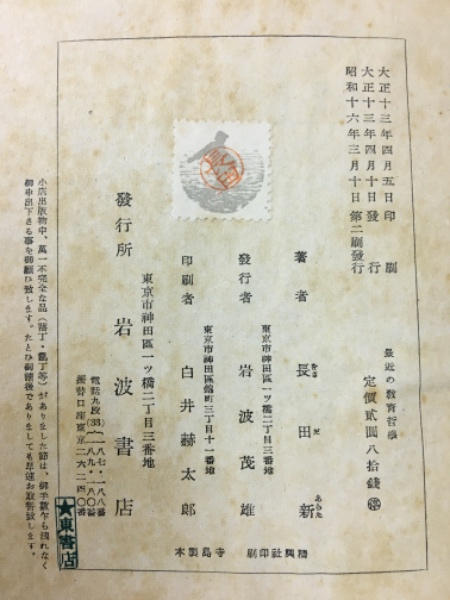 大正十三年四月五日印刷
大正十三年四月十日發行
昭和十六年三月十日第二刷發行
最近の教育哲學
定價貳圓八拾錢
著者 長田新
をさ だ あらた
東京市神田區一ツ橋二丁目三番地
發行者 岩波茂雄
東京市神田區錦町三丁目十一番地
印刷者 白井赫太郎
精興社印刷 寺島製本
東京市神田區一ツ橋二丁目三番地
發行所 岩波書店
電話九段(33)
振替口座東京二六二四〇番
小店出版物中、萬一不完全な品(落丁・亂丁等)がありました節は、御手數乍ら洩れなく
御申出下さる事を御願ひ致します。たとひ御讀後でありましても早速お取替致します。
★東書店